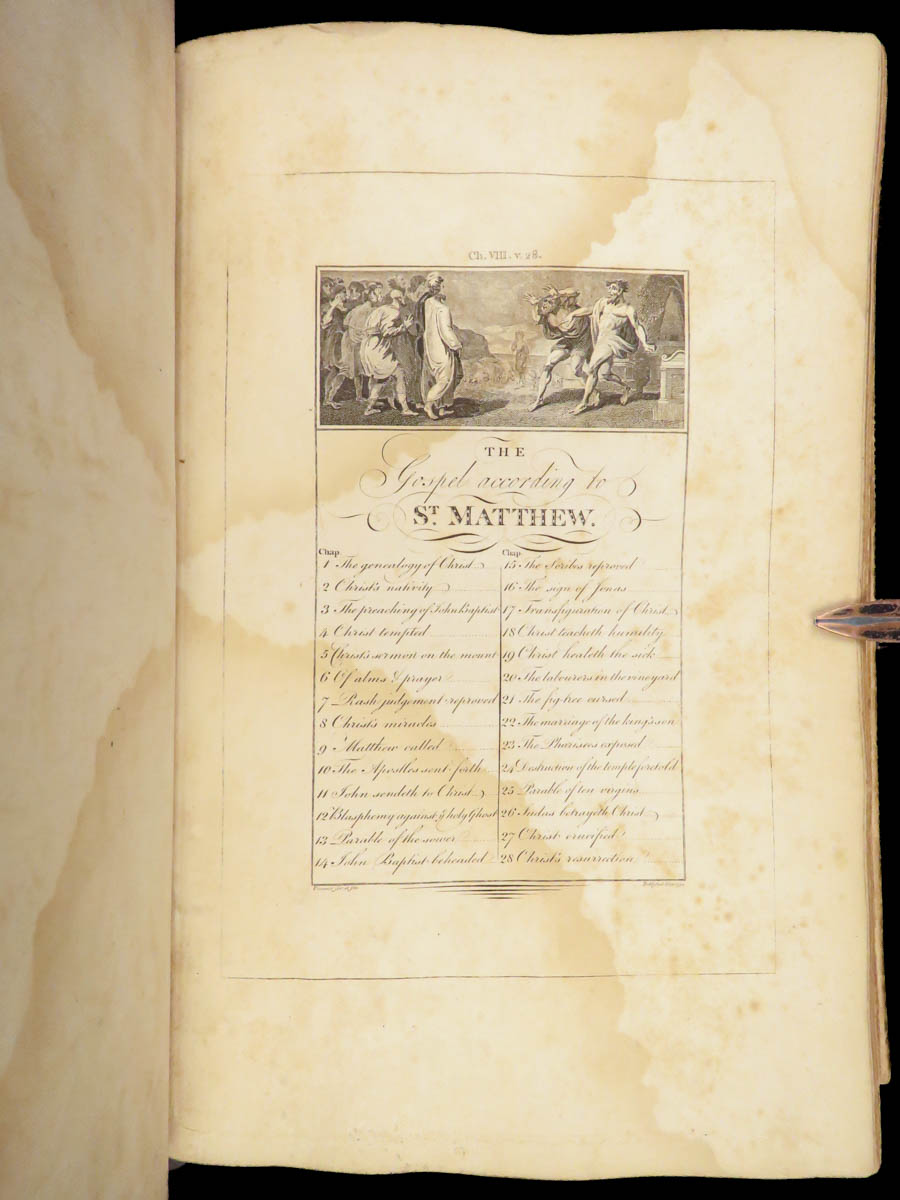 Ch. VIII. v. 28.
THE
Gospel according to
ST. MATTHEW.
Chap.
1 The genealogy of Christ
2 Christ's nativity
3 The preaching of John Baptist
4 Christ tempted
5 Christ's sermon on the mount
6 Of alms & prayer
7 Rash judgement reproved
8 Christ's miracles
9 Matthew called
10 The Apostles sent forth
11 John sendeth to Christ
12 Blasphemy against ye holy Ghost
13 Parable of the sower
14 John Baptist beheaded
Chap.
15 The Scribes reproved
16 The sign of Jonas
17 Transfiguration of Christ
18 Christ teacheth humility
19 Christ healeth the sick
20 The labourers in the vineyard
21 The fig-tree cursed
22 The marriage of the king's son
23 The Pharisees exposed
24 Destruction of the temple foretold
25 Parable of ten virgins
26 Judas betrayeth Christ
27 Christ crucified
28 Christ's resurrection